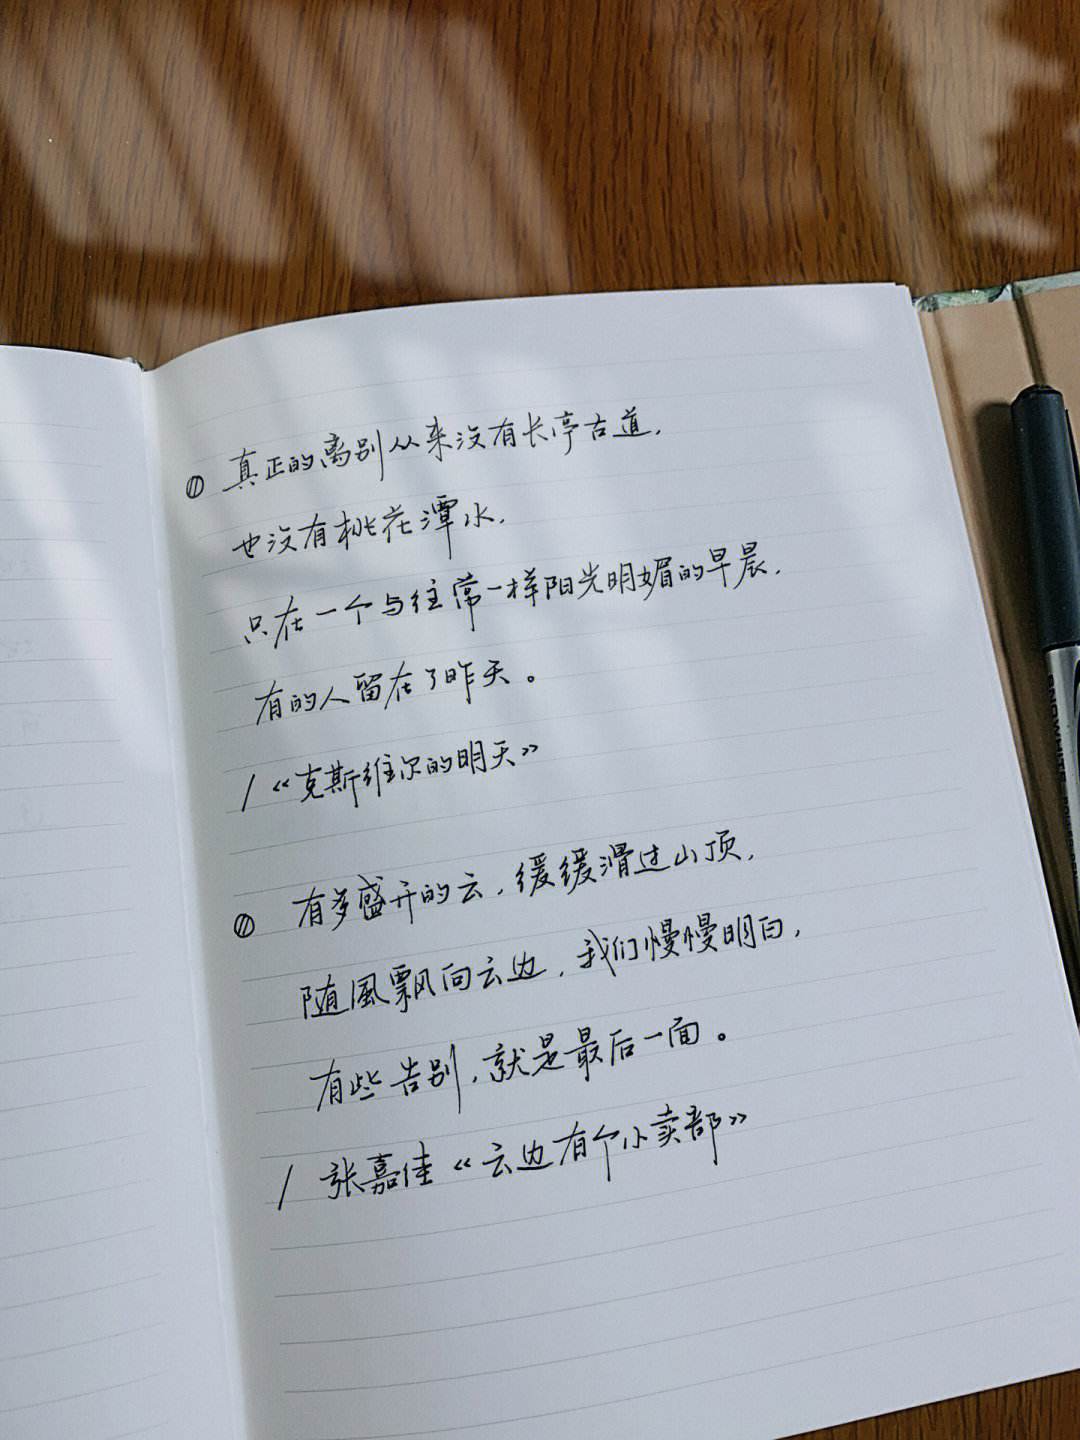 真正的离别从来没有长亭古道,
也没有桃花潭水,
只在一个与往常一样阳光明媚的早晨,
有的人留在了昨天。
/《克斯维尔的明天》
有多盛开的云,缓缓滑过山顶,
随風飘向云边,我们慢慢明白,
有些告别,就是最后一面。
/ 张嘉佳《云边有个小卖部》
SNOWHITE